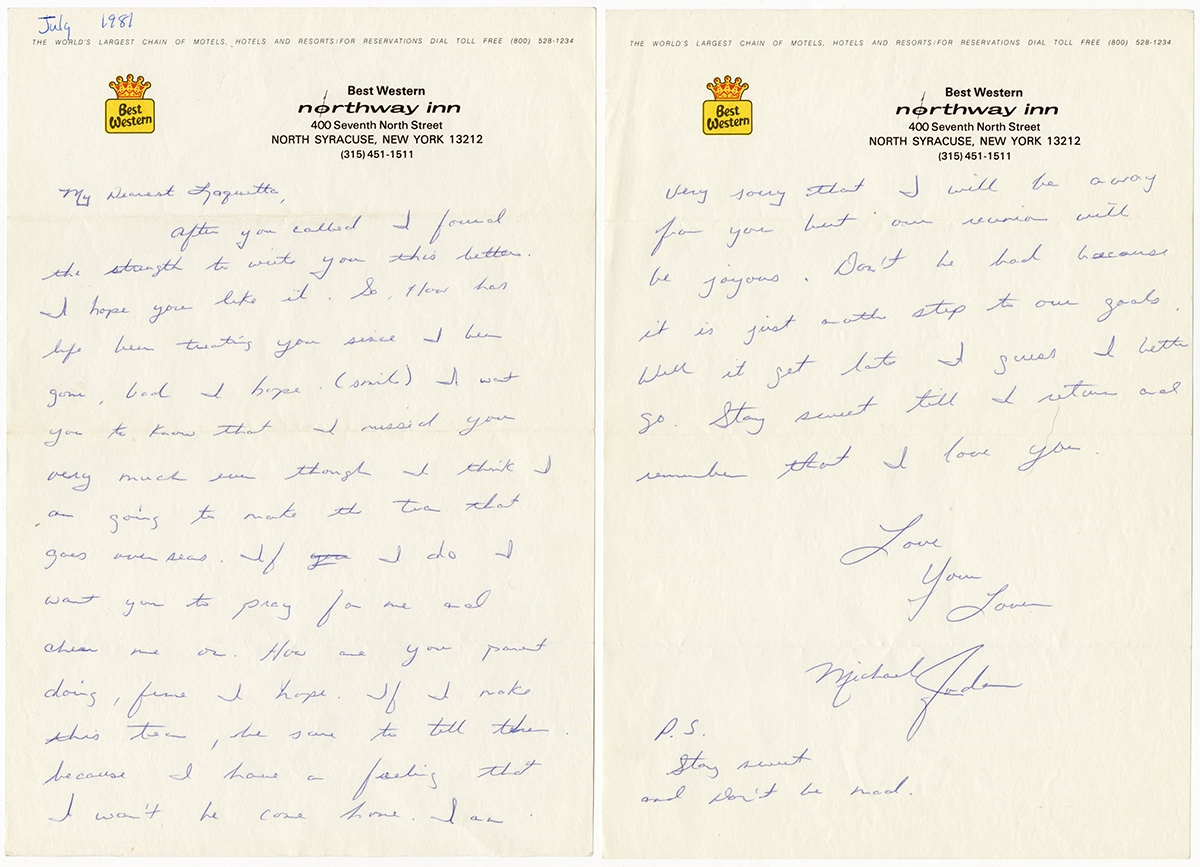 July 1981
THE WORLD'S LARGEST CHAIN OF MOTELS, HOTELS AND RESORTS/FOR RESERVATIONS DIAL TOLL FREE (800) 528-1234
Best Western
Best Western
northway inn
400 Seventh North Street
NORTH SYRACUSE, NEW YORK 13212
(315) 451-1511
My Dearest Laquetta,
After you called I found
the strength to write you this letter.
I hope you like it. So, How has
life been treating you since I been
gone, bad I hope. (smile) I want
you to know that I missed you
very much even though I think I
am going to make the team that
goes over seas. If you I do I
want you to pray for me and
cheer me on. How are your parent
doing, fine I hope. If I make
this team, be sure to tell them
because I have a feeling that
I won't be come home. I am
THE WORLD'S LARGEST CHAIN OF MOTELS, HOTELS AND RESORTS/FOR RESERVATIONS DIAL TOLL FREE (800) 528-1234
Best Western
Best Western
northway inn
400 Seventh North Street
NORTH SYRACUSE, NEW YORK 13212
(315) 451-1511
very sorry that I will be away
from you but our reunion will
be joyous. Don't be bad because
it is just another step to our goals.
Well it get late I guess I better
go. Stay sweet till I return and
remember that I love you.
Love
Your
Lover
Michael Jordan
P.S.
Stay sweet
and Don't be mad.